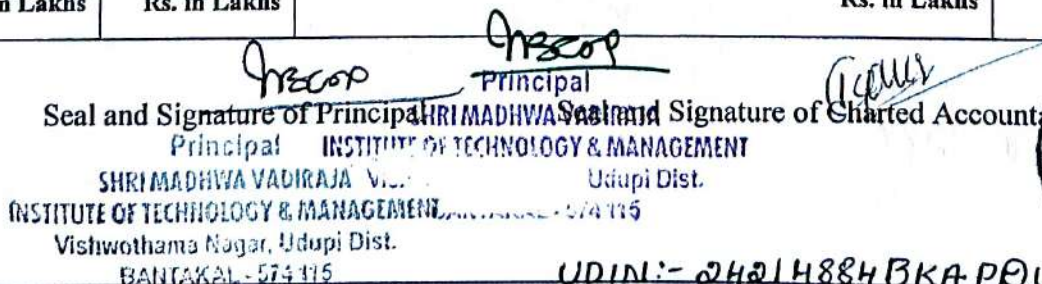 Lakhs
Rs. in Lakhs
Rs. in Lakhs
Principal
Seal and Signature of Principal
SHRI MADHWA
Seal and Signature of Charted
Principal
INSTITUTE OF TECHNOLOGY & MANAGEMENT
SHRI MADHWA VADIRAJA
Udupi Dist.
INSTITUTE OF TECHNOLOGY & MANAGEMENT
574 115
Vishwothama Nagar, Udupi Dist.
BANTAKAL - 574 115
UDIN:-